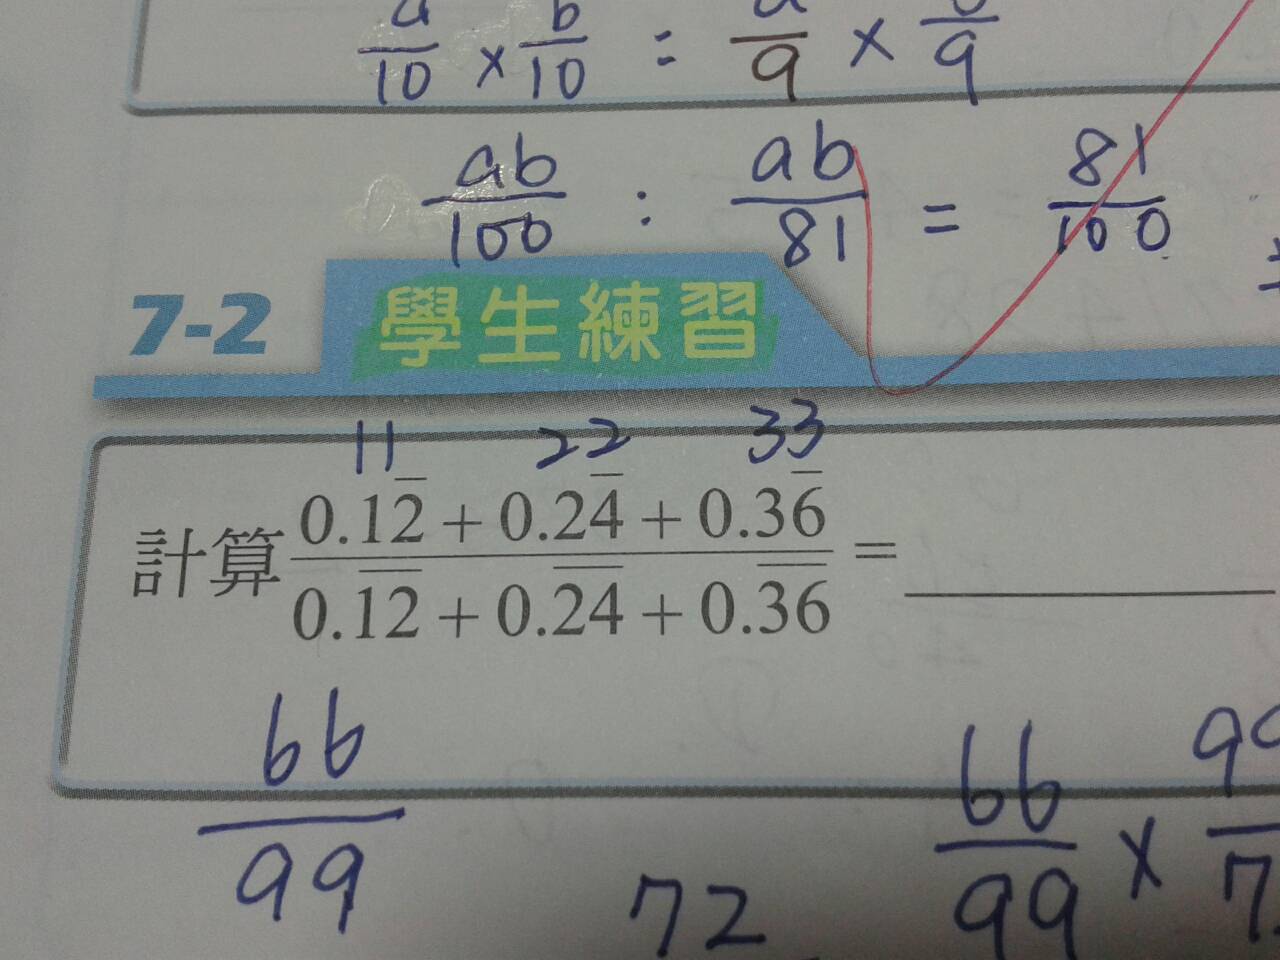 a/10 × b/10 = a/9 × b/9
ab/100 : ab/81 = 81/100
7-2 學生練習
11 22 33
計算 (0.12̅ + 0.24̅ + 0.36̅)/(0.1̅2̅ + 0.2̅4̅ + 0.3̅6̅) = ______
66/99
72
66/99 ×